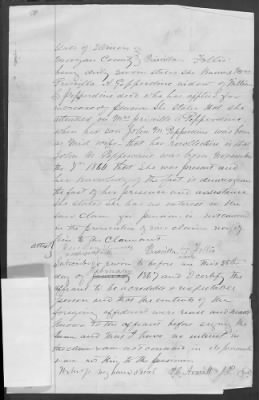 State of Illinois
Morgan County Priscilla Follis
being duly sworn states she knows Mrs
Priscilla A Pepperdine widow of William
Pepperdine decd who has applied for
increased pension She states that she
attended on Mrs Priscilla A Pepperdine
when her son John M Pepperdine was born
as mid wife that her recollection is that
John M Pepperdine was born November
the 1866 that she was present and
her knowledge of the fact is derived from
the fact of her presence and assistance
She states she has no interest in the
said claim for pension is not concerned
in the prosecution of said claim nor of
kin to the claimant
attest Priscilla Follis
Subscribed & sworn to before me this
day of February 1867 and I certify the
affiant to be a credible & respectable
person and that the contents of the
foregoing affidavit were read and made
known to the affiant before signing the
same and that I have no interest in
the claim nor am concerned in its prosecution
& am not of kin to the
Witness my hand & seal J.P.